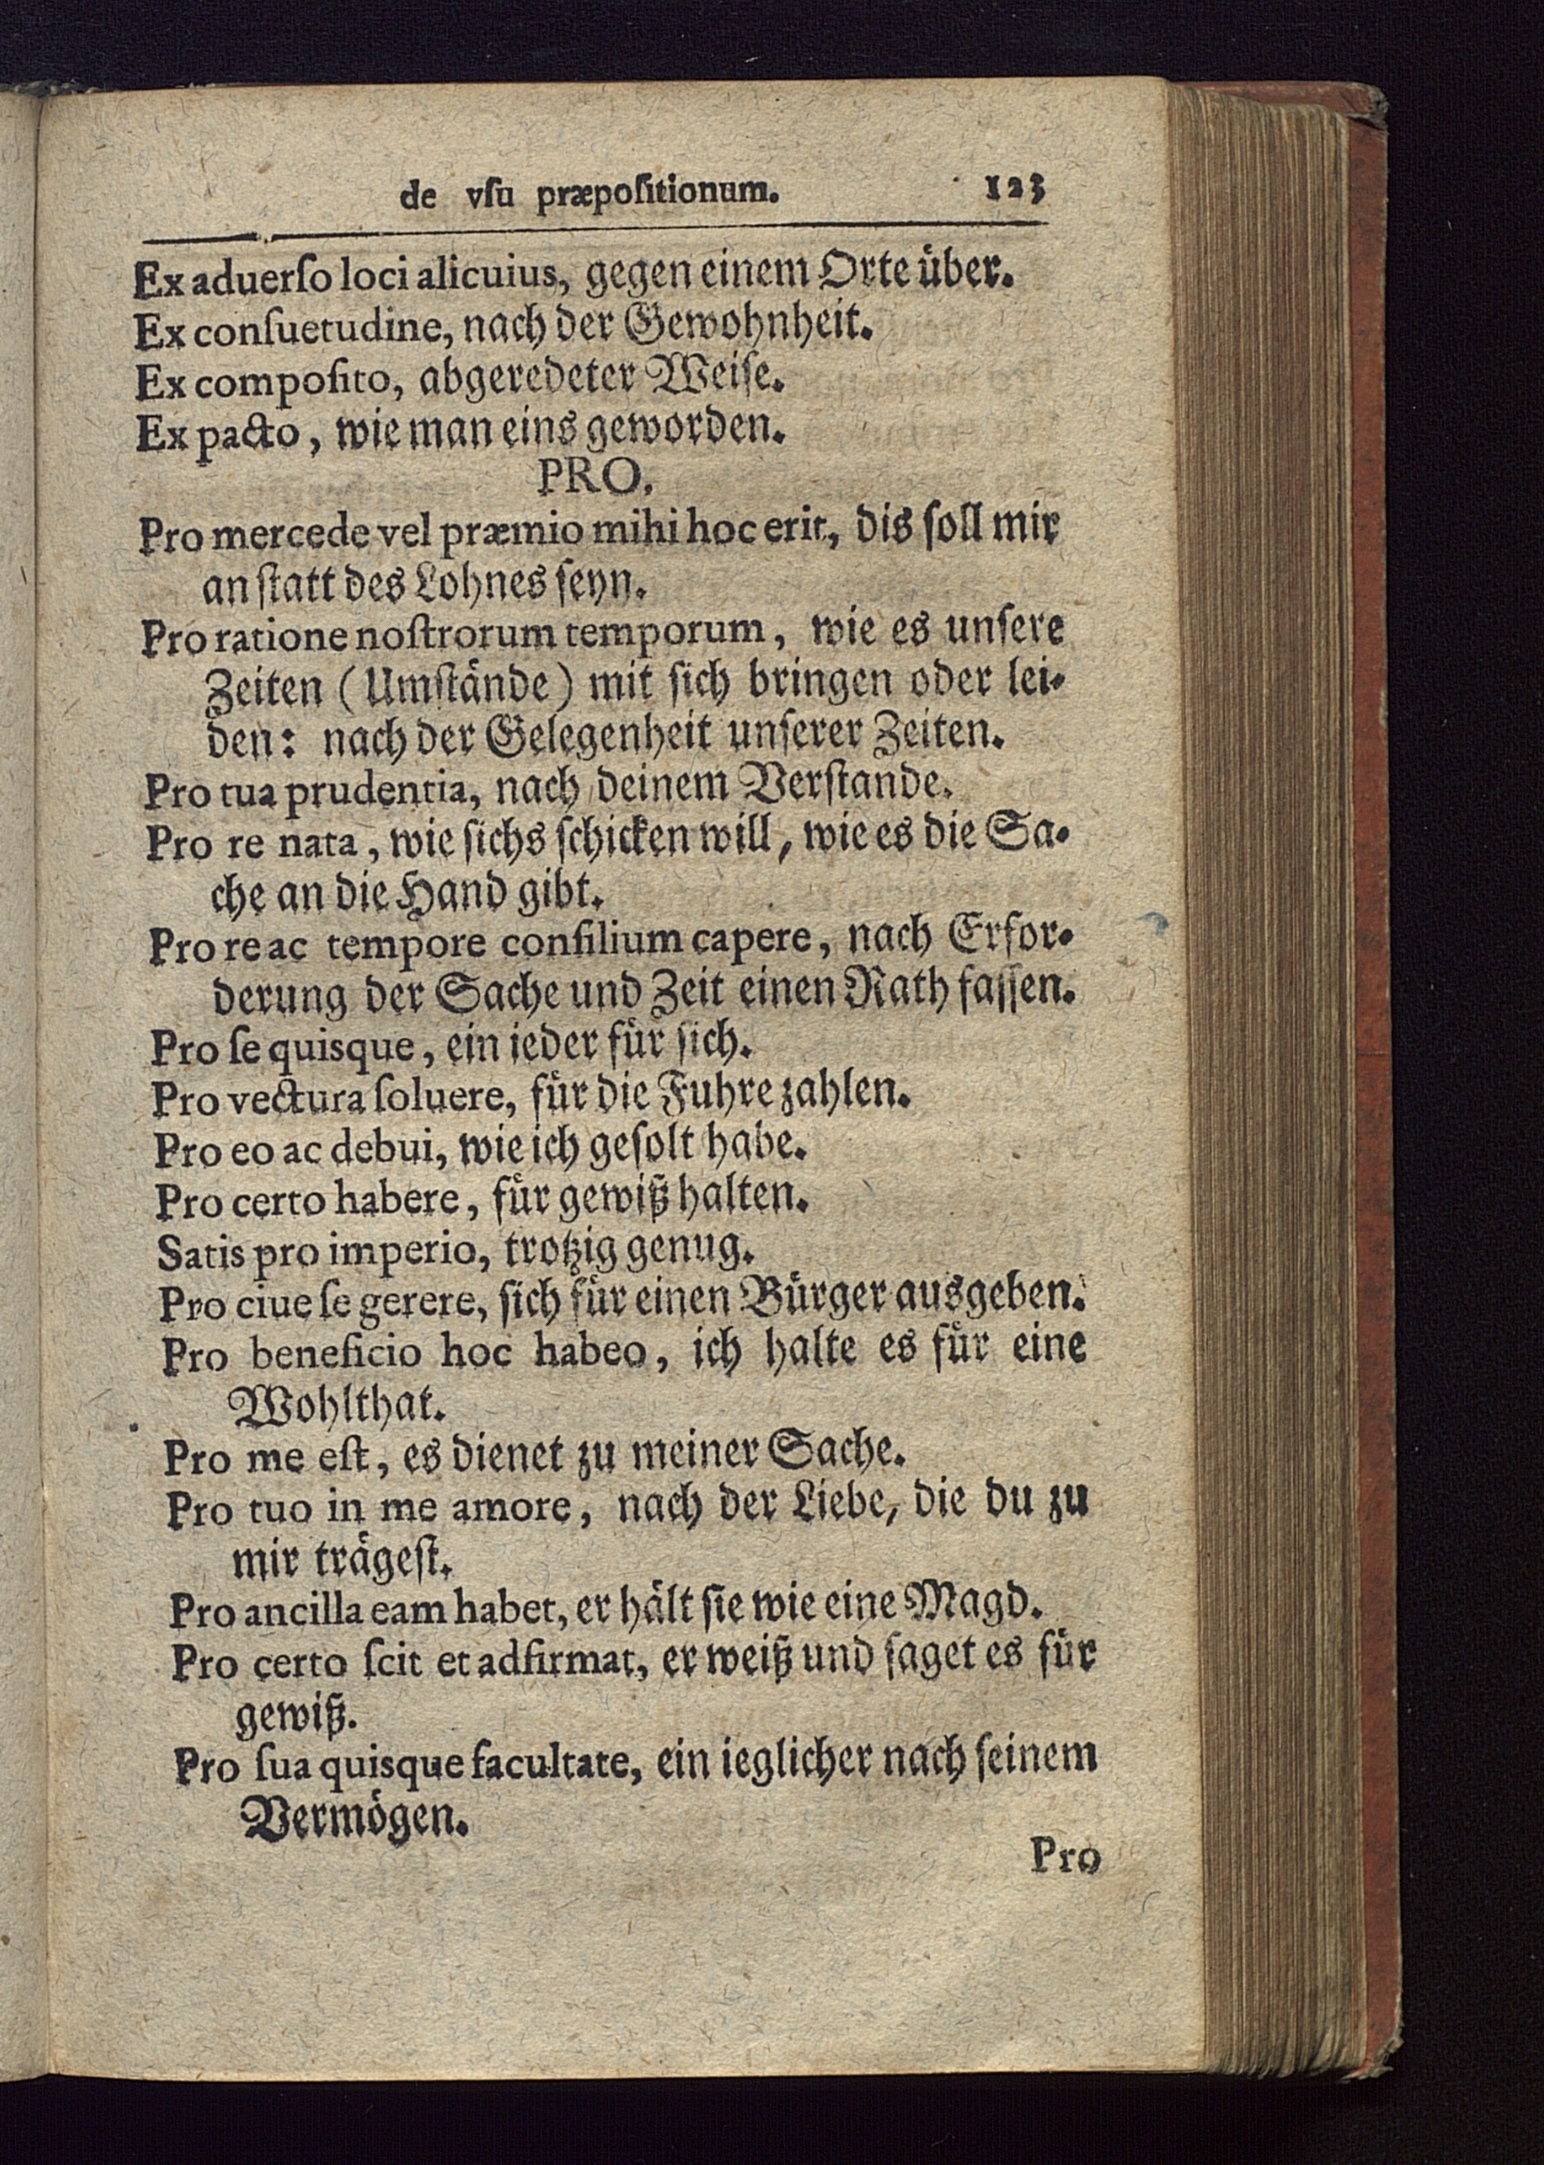 de vſu præpoſitionum. 123
Ex aduerſo loci alicuius, gegen einem Orte über.
Ex conſuetudine, nach der Gewohnheit.
Ex compoſito, abgeredeter Weiſe.
Ex pacto, wie man eins geworden.
PRO.
Pro mercede vel præmio mihi hoc erit, dis ſoll mir
an ſtatt des Lohnes ſeyn.
Pro ratione noſtrorum temporum, wie es unſere
Zeiten (Umſtände) mit ſich bringen oder lei-
den: nach der Gelegenheit unſerer Zeiten.
Pro tua prudentia, nach deinem Verſtande.
Pro re nata, wie ſichs ſchicken will, wie es die Sa-
che an die Hand gibt.
Pro re ac tempore conſilium capere, nach Erfor-
derung der Sache und Zeit einen Rath faſſen.
Pro ſe quisque, ein ieder für ſich.
Pro vectura ſoluere, für die Fuhre zahlen.
Pro eo ac debui, wie ich geſolt habe.
Pro certo habere, für gewiß halten.
Satis pro imperio, trotzig genug.
Pro ciue ſe gerere, ſich für einen Bürger ausgeben.
Pro beneficio hoc habeo, ich halte es für eine
Wohlthat.
Pro me eſt, es dienet zu meiner Sache.
Pro tuo in me amore, nach der Liebe, die du zu
mir trägeſt.
Pro ancilla eam habet, er hält ſie wie eine Magd.
Pro certo ſcit et adfirmat, er weiß und ſaget es für
gewiß.
Pro ſua quisque facultate, ein ieglicher nach ſeinem
Vermögen.
Pro